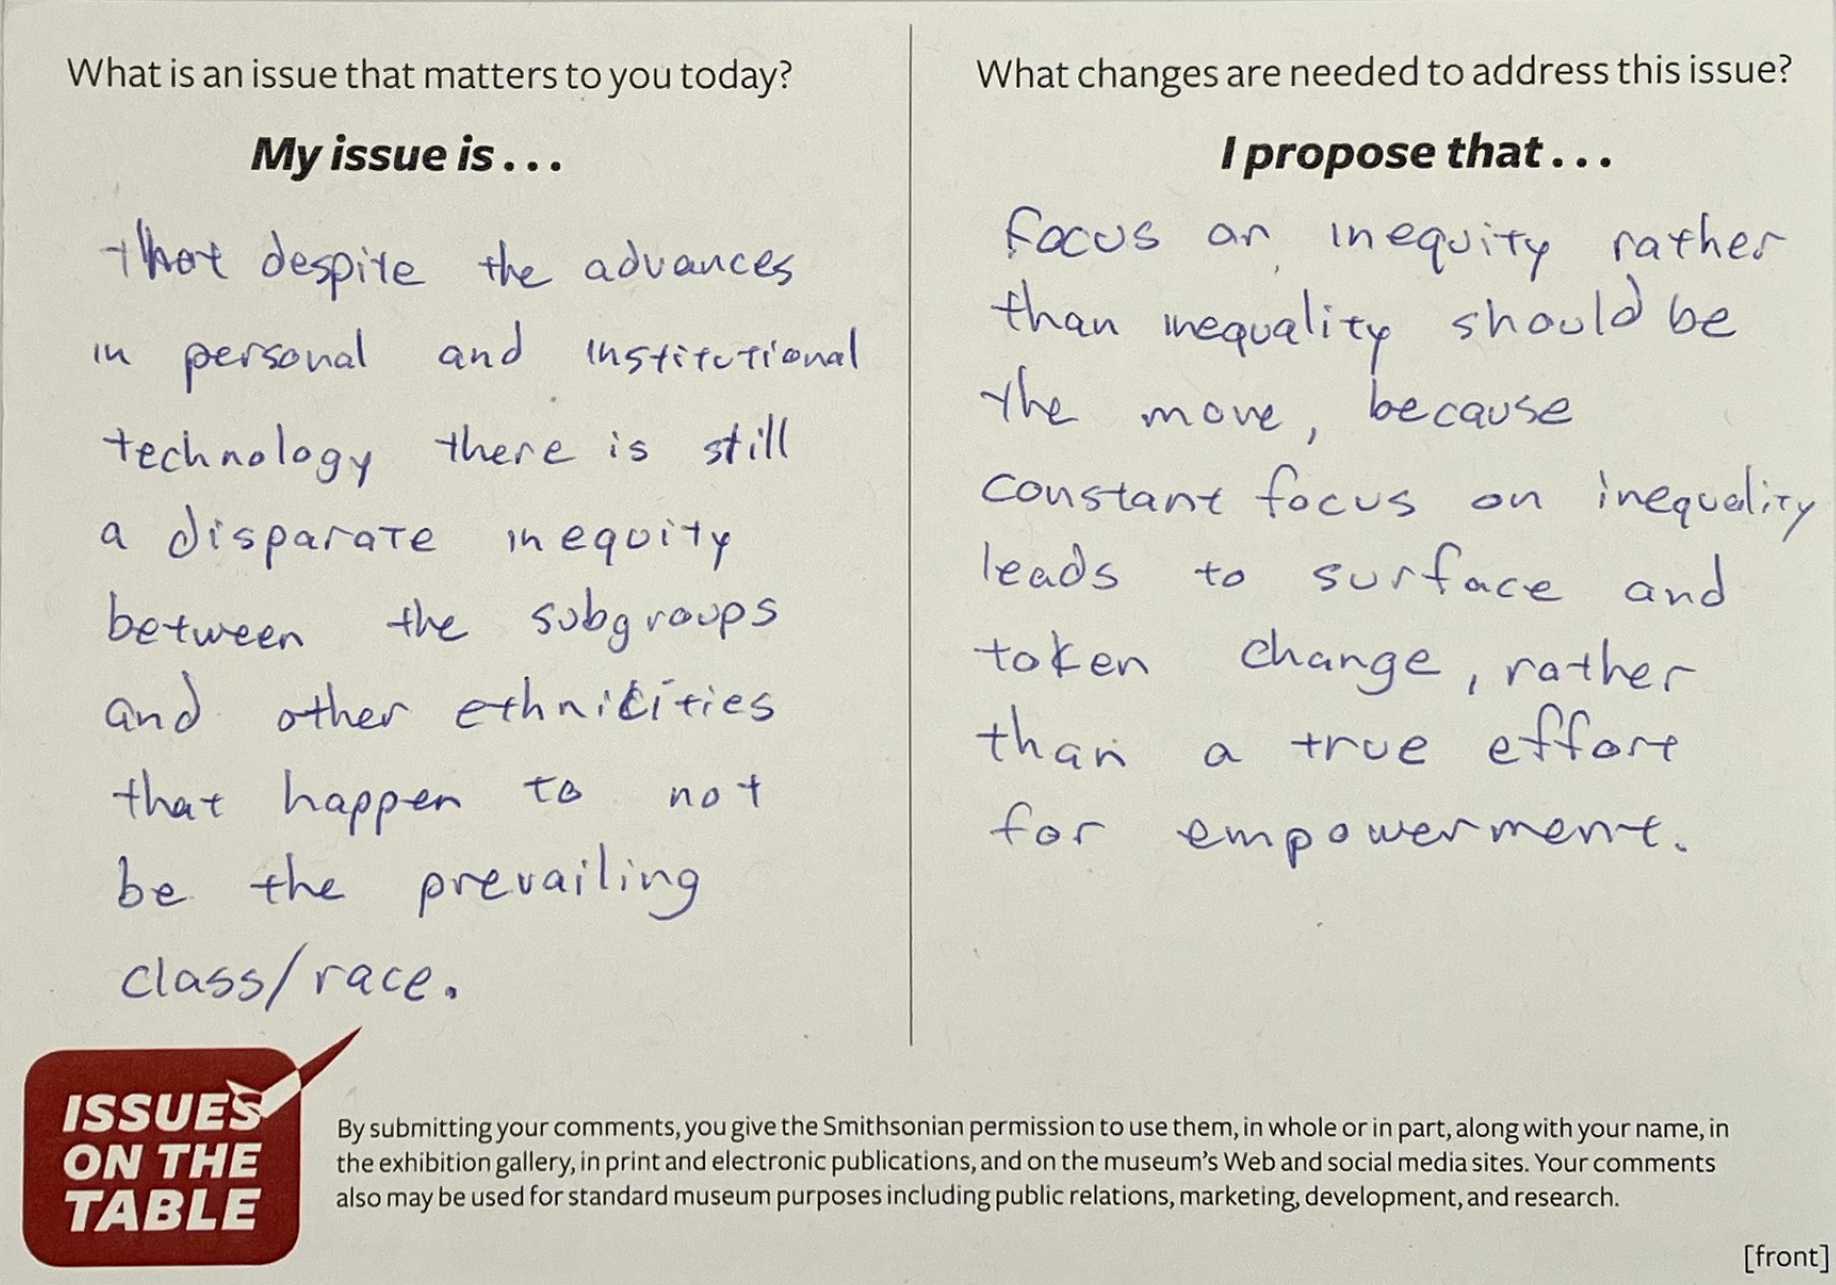 What is an issue that matters to you today?
My issue is . . .
that despite the advances
in personal and institutional
technology there is still
a disparate inequity
between the subgroups
and other ethnicities
that happen to not
be the prevailing
class/race.
What changes are needed to address this issue?
I propose that . . .
focus on inequity rather
than inequality should be
the move, because
constant focus on inequality
leads to surface and
token change, rather
than a true effort
for empowerment.
ISSUES
ON THE
TABLE
By submitting your comments, you give the Smithsonian permission to use them, in whole or in part, along with your name, in
the exhibition gallery, in print and electronic publications, and on the museum's Web and social media sites. Your comments
also may be used for standard museum purposes including public relations, marketing, development, and research.
[front]